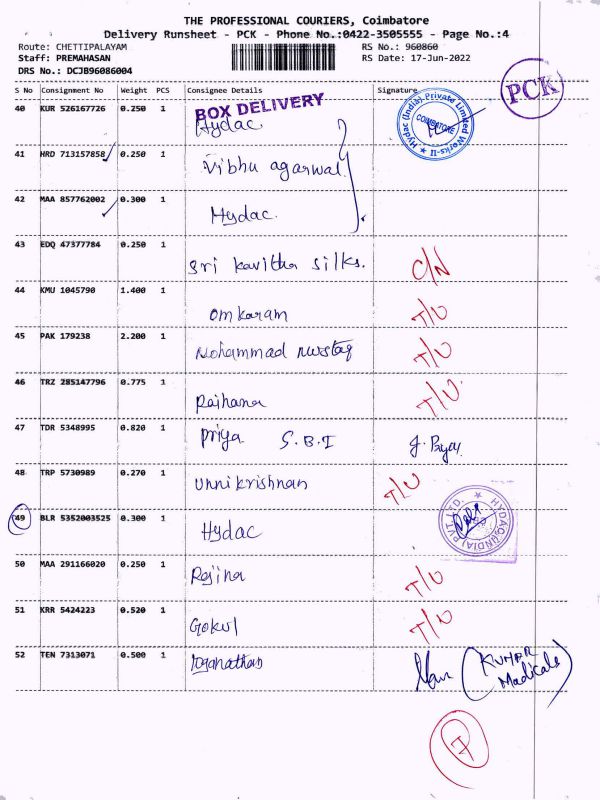 THE PROFESSIONAL COURIERS, Coimbatore
Delivery Runsheet - PCK - Phone No.:0422-3505555 - Page No.:4
Route: CHETTIPALAYAM RS No.: 960860
Staff: PREMAHASAN RS Date: 17-Jun-2022
DRS No.: DCJB96086004
PCK
S No Consignment No Weight PCS Consignee Details Signature
BOX DELIVERY
40 KUR 526167726 0.250 1 Hydac.
Hydac (India) Private Limited Works-II ★ COIMBATORE
41 HRD 713157858 0.250 1 Vibhu agarwal
42 MAA 857762002 0.300 1 Hydac.
43 EDQ 47377784 0.250 1 Sri kavitha silks. C/N
44 KMU 1045790 1.400 1 Omkaram T/U
45 PAK 179238 2.200 1 Mohammad T/U
46 TRZ 285147796 0.775 1 Raihana T/U
47 TDR 5348995 0.820 1 Priya S.B.I
48 TRP 5730989 0.270 1 Unnikrishnan T/U
49 BLR 5352003525 0.300 1 Hydac
HYDAC (INDIA) PVT. LTD. ★
50 MAA 291166020 0.250 1 Rejina T/U
51 KRR 5424223 0.520 1 Gokul T/U
52 TEN 7313071 0.500 1 (KUMAR
Madicals)
7